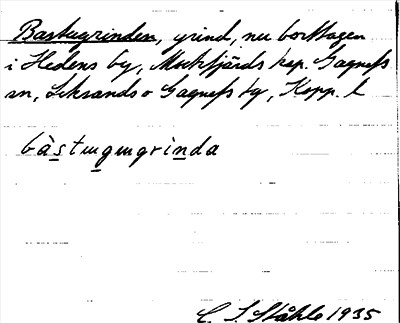 Bastugrinden, grind, nu borttagen
i Hedens by, Mockfjärds kap. Gagnefs
sn, Leksands o Gagnefs tg, Kopp. l
C. I. Ståhle 1935